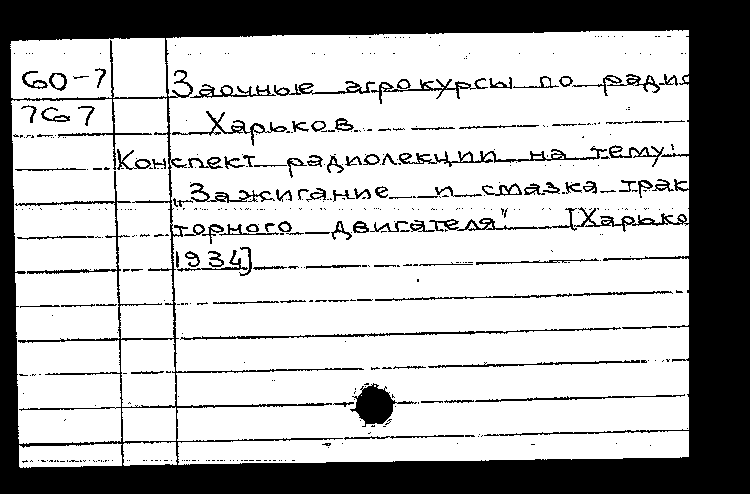 60-7
767
Заочные агрокурсы по радио
Харьков
Конспект радиолекции на тему:
„Зажигание и смазка трак
торного двигателя" [Харько
1934]